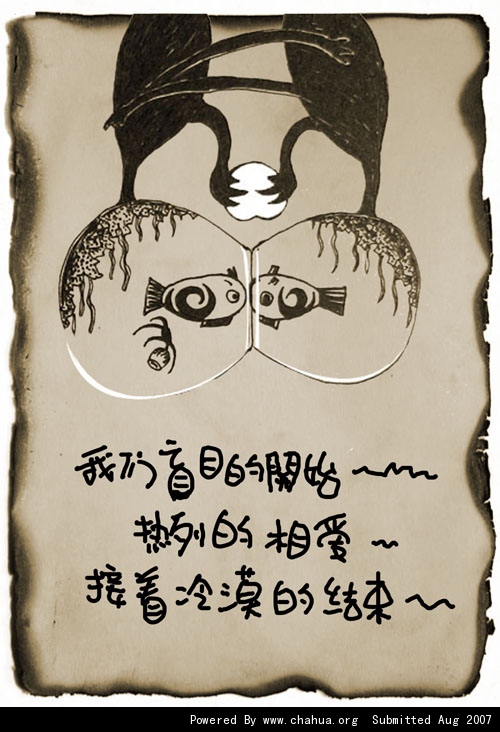 我们盲目的開始~~~
热列的相爱~
接着冷漠的结束~~
Powered By www.chahua.org Submitted Aug 2007